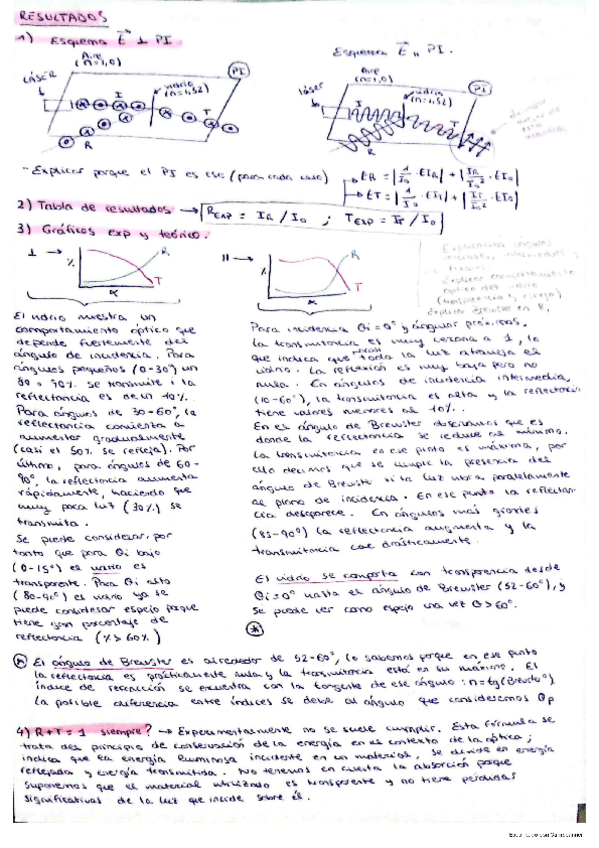 RESULTADOS
1) Esquema E ⊥ PI
Esquema E ∥ PI.
Aire
(n=1,0)
LÁSER
vidrio
(n=1,52)
PI
I
T
R
Aire
(n=1,0)
LÁSER
vidrio
(n=1,52)
PI
I
T
R
- Explicar porque el PI es ese (para cada caso)
ER = |1/I₀ · EIR| + |IR/I₀² · EI₀|
ET = |1/I₀ · EIT| + |IT/I₀² · EI₀|
2) Tabla de resultados → REXP = IR / I₀ ; TEXP = IT / I₀
3) Gráficos exp y teórico.
⊥ →
%
R
T
∝
∥ →
%
R
T
∝
El vidrio muestra un
comportamiento óptico que
depende fuertemente del
ángulo de incidencia. Para
ángulos pequeños (0-30°) un
80 - 90% se transmite i la
reflectancia es de un 10%.
Para ángulos de 30-60°, la
reflectancia comienta a
aumentar gradualmente
(casi el 50% se refleja). Por
último, para ángulos de 60-
90°, la reflectancia aumenta
rápidamente, haciendo que
muy poca luz (30%) se
transmita.
Se puede considerar, por
tanto que para Θi bajo
(0-15°) es vidrio es
transparente. Para Θi alto
(80-90°) es vidrio ya se
puede considerar espejo porque
tiene gran porcetaje de
reflectancia (% > 60%)
Para incidencia Θi = 0° y ángulos próximos.
la transmitancia es muy cercana a 1, lo
que indica que toda la luz atraviesa el
vidrio. La reflexión es muy baja pero no
nula. En ángulos de incidencia intermedia,
(10-60°), la transmitancia es alta y la reflectancia
tiene valores menores al 10%.
En el ángulo de Brewster observamos que es
donde la reflectancia se reduce al mínimo.
La transmitancia en ese punto es máxima, por
ello decimos que se cumple la presencia del
ángulo de Brewster si la luz vibra paralelamente
al plano de incidencia. En ese punto la reflectan-
cia desaparece. En ángulos más grandes
(85-90°) la reflectancia augmenta y la
transmitancia cae drásticamente.
El vidrio se comporta con transparencia desde
Θi = 0° hasta el ángulo de Brewster (52-60°), y
se puede ver como espejo una vez Θ > 60°.
* El ángulo de Brewster es alrededor de 52-60°, lo sabemos porque en ese punto
la reflectancia es prácticamente nula y la transmitancia está en su máximo. El
índice de refracción se encuentra con la tangente de ese ángulo: n = tg(Brewster)
La posible diferencia entre índices se debe al ángulo que consideremos Θp
4) R + T = 1 siempre? → Experimentalmente no se suele cumplir. Esta fórmula se
trata del principio de conservación de la energía en el contexto de la óptica;
indica que la energía luminosa incidente en un material, se divide en energía
reflejada y energía transmitida. No tenemos en cuenta la absorción porque
suponemos que el material utilizado es transparente y no tiene pérdidas
significativas de la luz que incide sobre él.